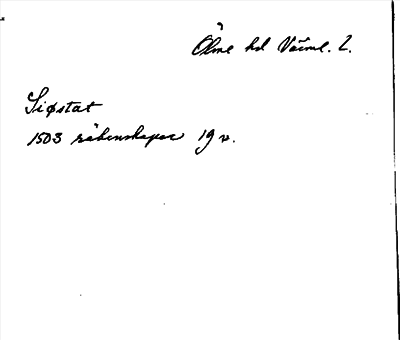 Ölme hd Värml. l.
Siøstat
1503 räkenskaper 19 v.